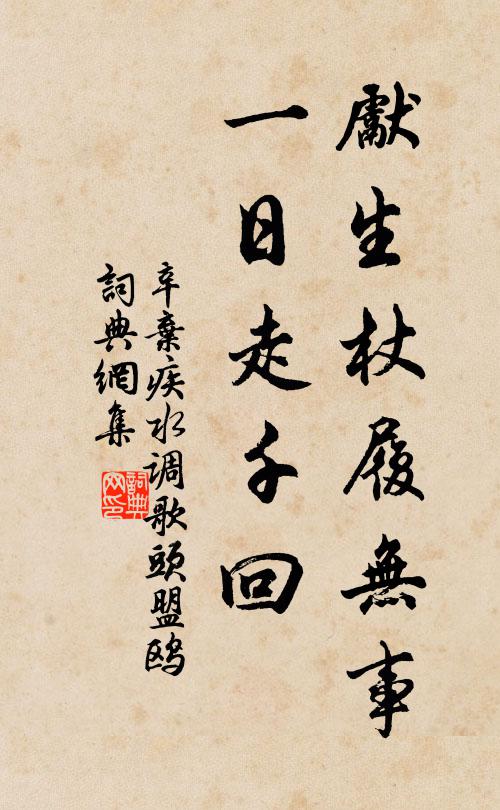 獻生杖履無事
一日走千回
辛棄疾水调歌頭盟鸥
詞典網集
詞典
网印